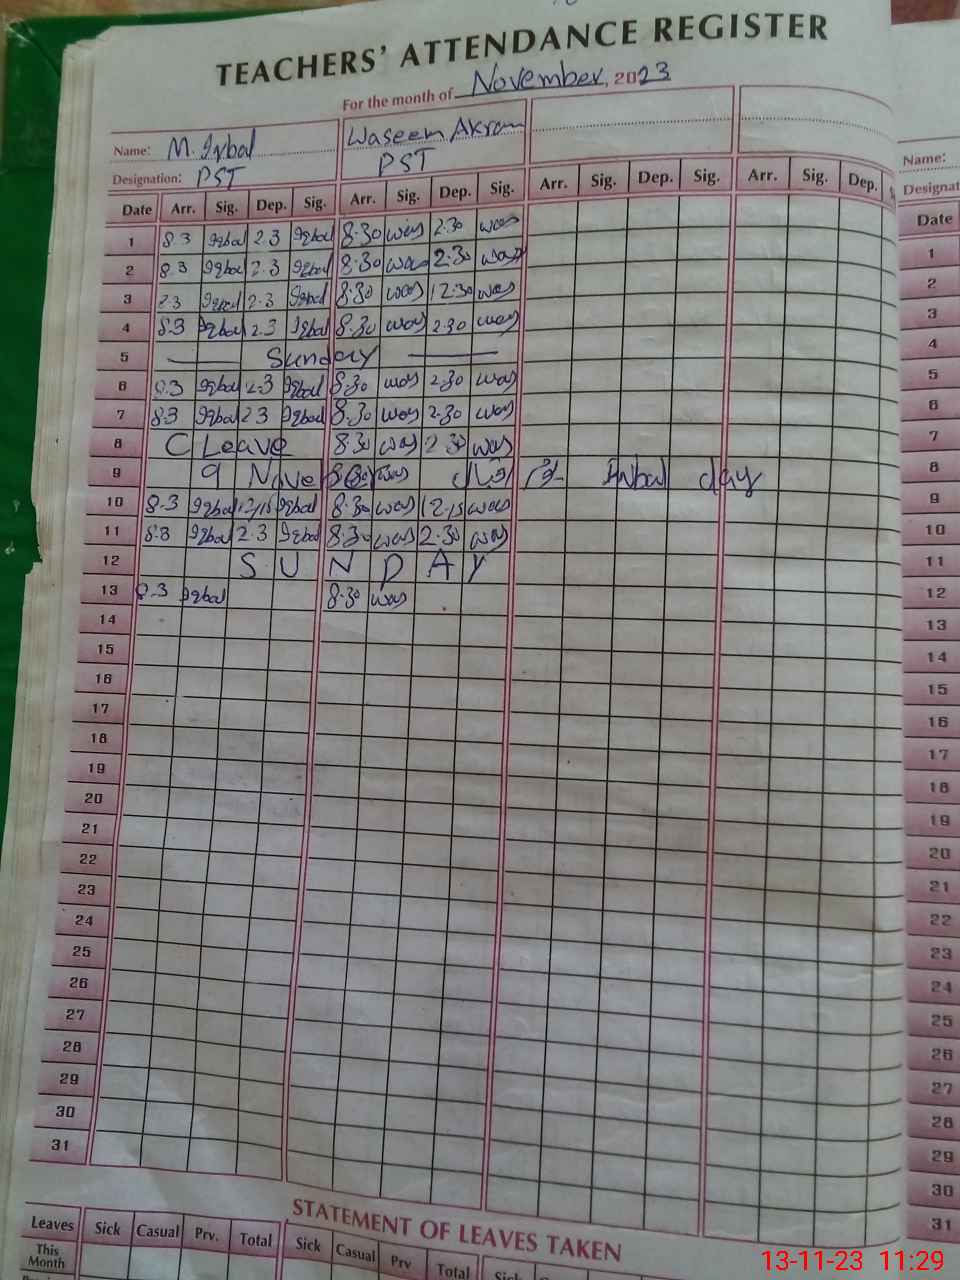 TEACHERS' ATTENDANCE REGISTER
For the month of November, 2023
Name: M. Iqbal Waseem Akram
Designation: PST PST
Date Arr. Sig. Dep. Sig. Arr. Sig. Dep. Sig. Arr. Sig. Dep. Sig. Arr. Sig. Dep.
1 8.3 Iqbal 2.3 Iqbal 8.30 was 2.30 was
2 8.3 Iqbal 2.3 Iqbal 8.30 was 2.30 was
3 2.3 Iqbal 2.3 Iqbal 8.30 was 12.30 was
4 8.3 Iqbal 2.3 Iqbal 8.30 was 2.30 was
5 Sunday
6 8.3 Iqbal 2.3 Iqbal 8.30 was 2.30 was
7 8.3 Iqbal 2.3 Iqbal 8.30 was 2.30 was
8 C Leave 8.30 was 2.30 was
9 9 Nove was Iqbal day
10 8.3 Iqbal 12.15 Iqbal 8.30 was 12.15 was
11 8.3 Iqbal 2.3 Iqbal 8.30 was 2.30 was
12 SUNDAY
13 8.3 Iqbal 8.30 was
14
15
16
17
18
19
20
21
22
23
24
25
26
27
28
29
30
31
STATEMENT OF LEAVES TAKEN
Leaves Sick Casual Prv. Total Sick Casual Prv Total Sick
This Month
Name:
Date
1
2
3
4
5
6
7
8
9
10
11
12
13
14
15
16
17
18
19
20
21
22
23
24
25
26
27
28
29
30
31
13-11-23 11:29